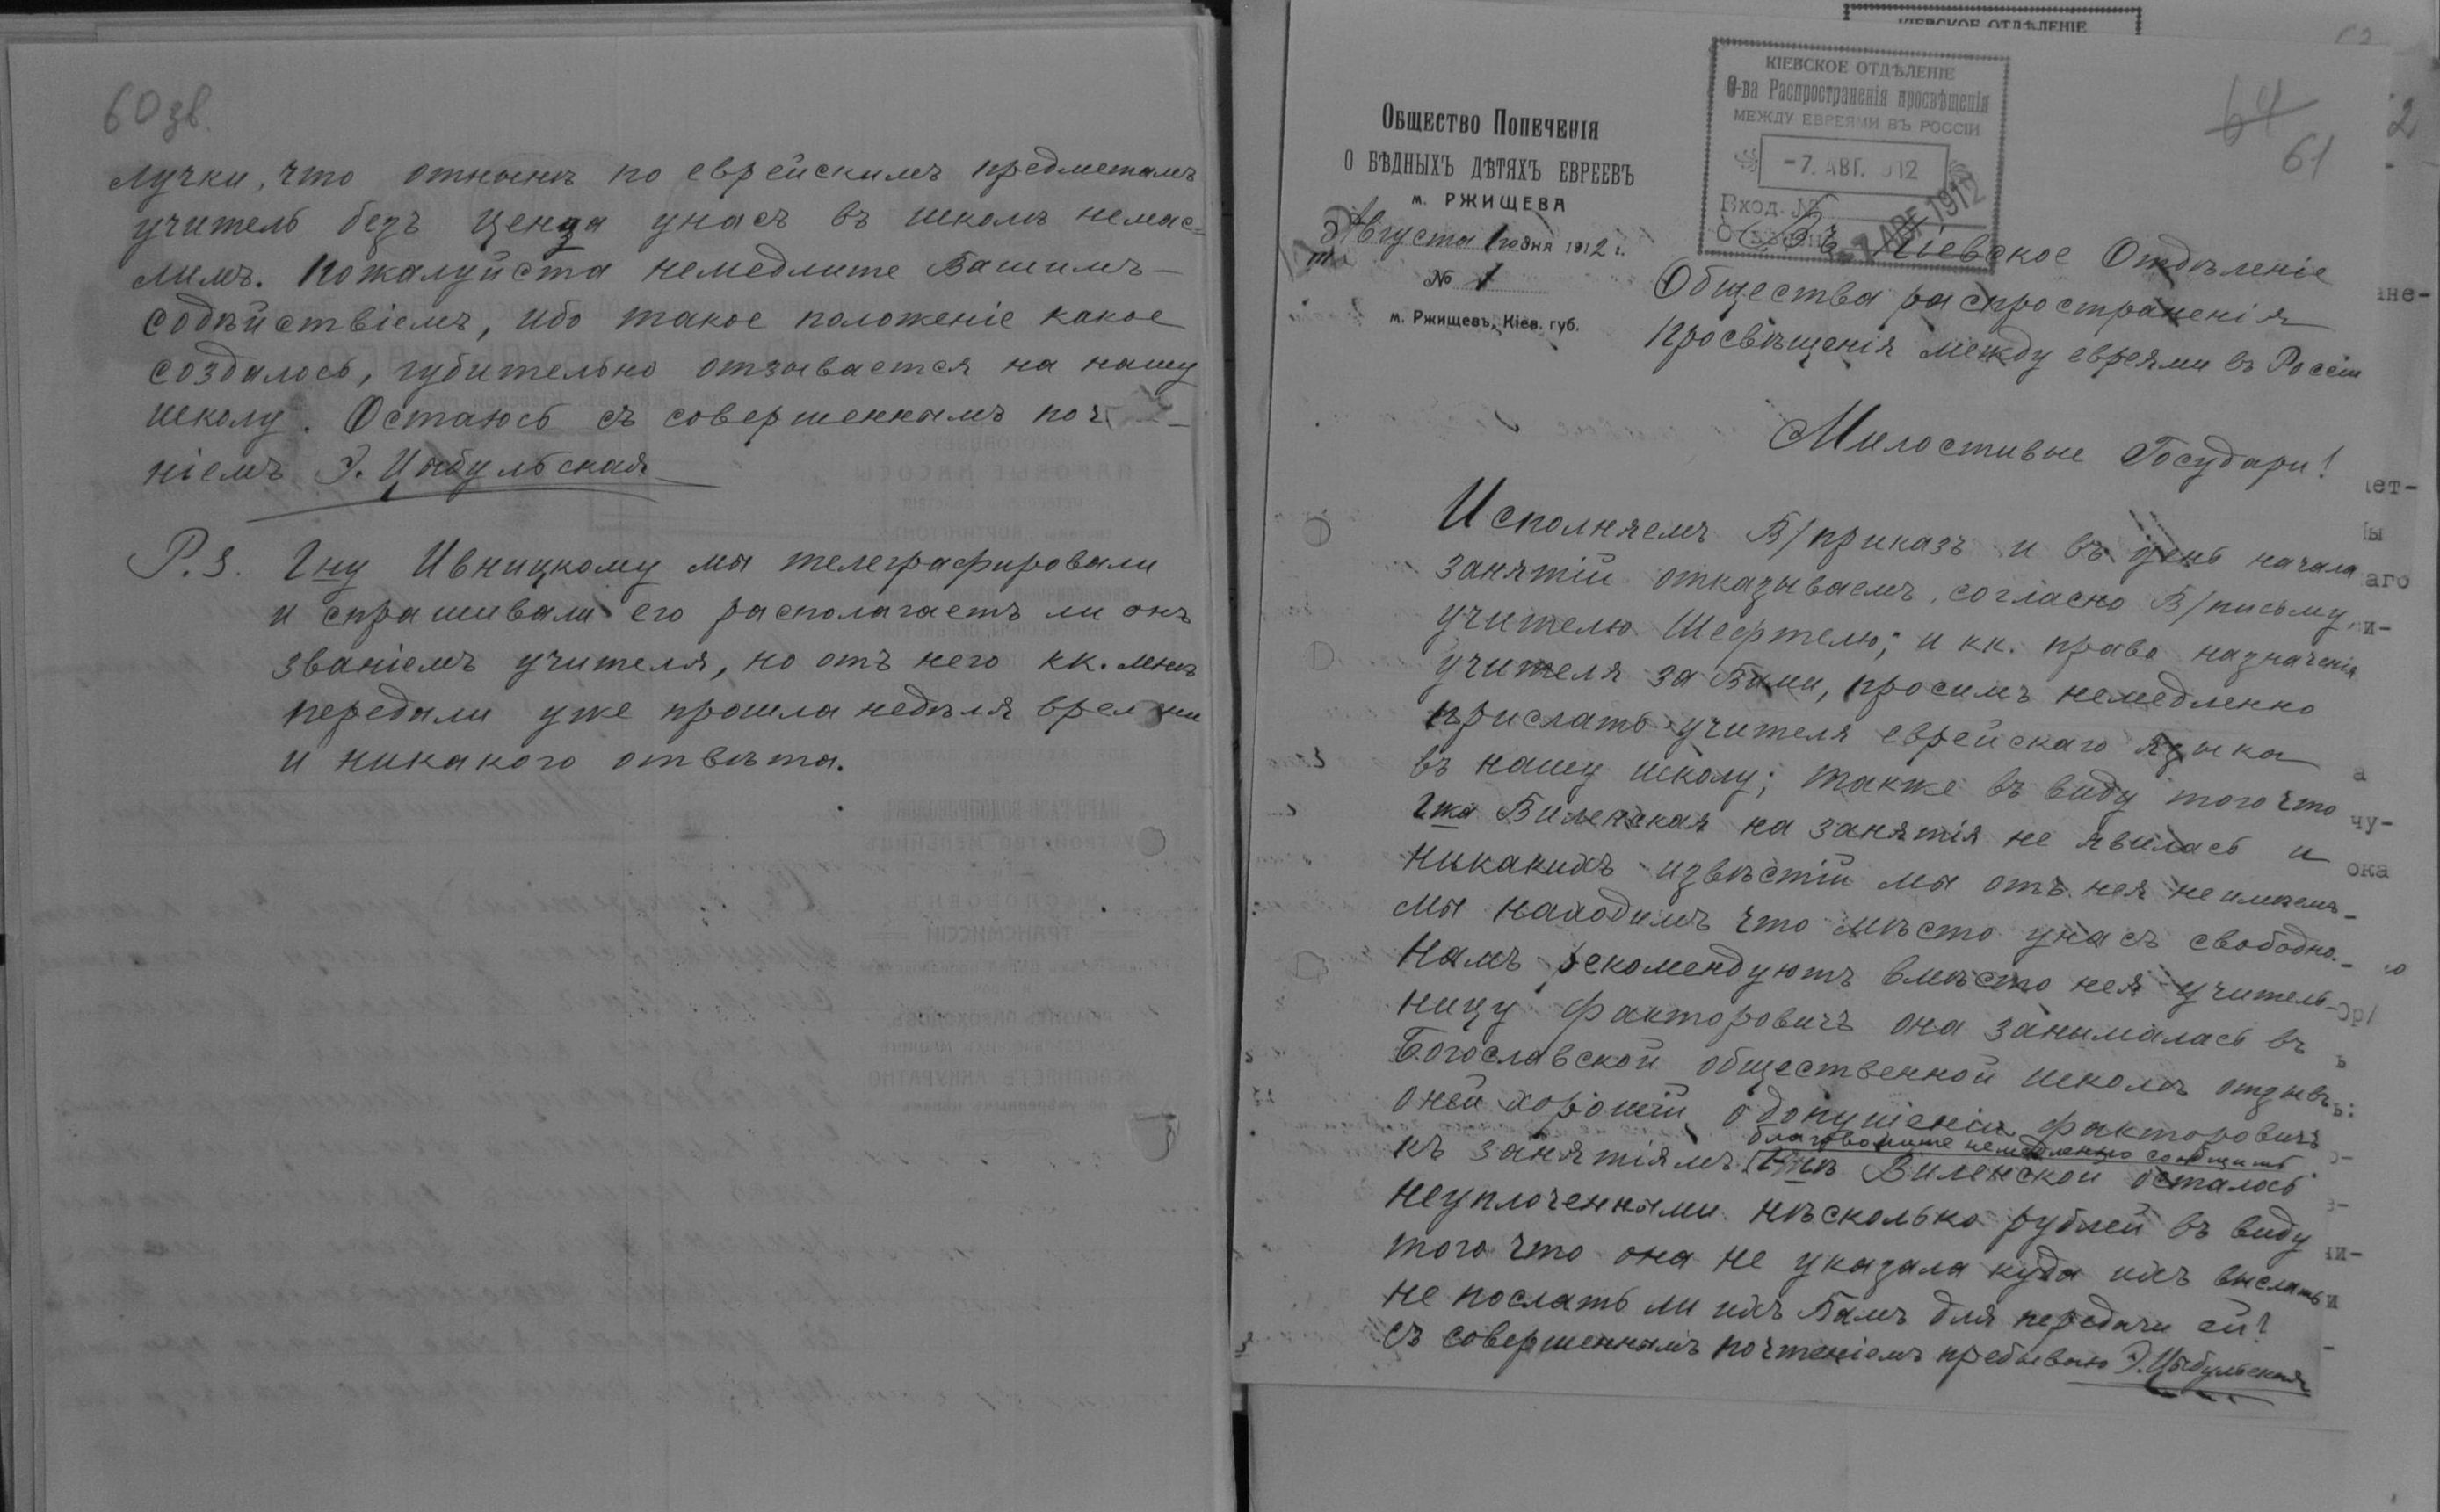 60 зв.
лучки, что отнынѣ по еврейскимъ предметамъ
учитель безъ ценза унасъ въ школѣ немыс=
лимъ. Пожалуйста немедлите Вашимъ
содѣйствіемъ, ибо такое положеніе какое
создалось, губительно отзывается на нашу
школу. Остаюсь съ совершеннымъ поч
ніемъ Э. Цыбульская
P.S. Гну Ивницкому мы телеграфировали
и спрашивали его располагаетъ ли онъ
званіемъ учителя, но отъ него кк. мнѣ
передали уже прошла недѣля времени
и никакого отвѣта.
КІЕВСКОЕ ОТДѢЛЕНІЕ
КІЕВСКОЕ ОТДѢЛЕНІЕ
О-ва Распространенія просвѣщенія
МЕЖДУ ЕВРЕЯМИ ВЪ РОССІИ
-7. АВГ. 912
Вход. №
7 АВГ 1912
64
61
2
Общество Попеченія
О БѢДНЫХЪ ДѢТЯХЪ ЕВРЕЕВЪ
м. РЖИЩЕВА
Августа 1 дня 1912 г.
№ 1
м. Ржищевъ, Кіев. губ.
Въ Кіевское Отдѣленіе
Общества распространенія
Просвѣщенія между евреями въ Россіи
Милостивые Государи!
Исполняемъ В/приказъ и въ день начала
занятій отказываемъ, согласно В/письму,
учителю Шефтелю; и кк. право назначенія
учителя за Вами, просимъ немедленно
прислать учителя еврейскаго языка
въ нашу школу; также въ виду того что
Гжа Виленская на занятія не явилась и
никакихъ извѣстій мы отъ нея не имѣемъ
мы находимъ что мѣсто унасъ свободно.
Намъ рекомендуютъ вмѣсто нея учитель-
ницу Факторовичъ она занималась въ
Богославской общественной школѣ отзывъ
оней хорошій, о допущеніи Факторовичъ
благоволите немедленно сообщить.
къ занятіямъ Г-жѣ Виленской осталось
неуплоченными нѣсколько рублей въ виду
того что она не указала куда ихъ выслать
не послать ли ихъ Вамъ для передачи ей?
Съ совершеннымъ почтеніемъ пребываю Э. Цыбульская